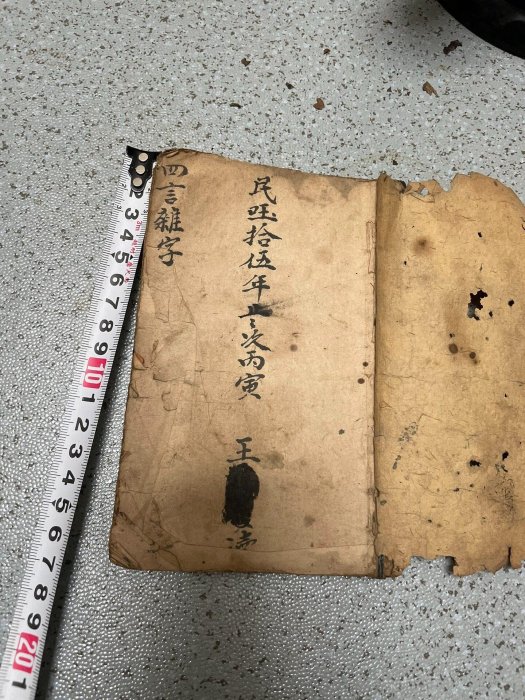 民旺拾伍年次丙寅 王
四言雜字
2 3 4 5 6 7 8 9 10 1 2 3 4 5 6 7 8 9 20 1